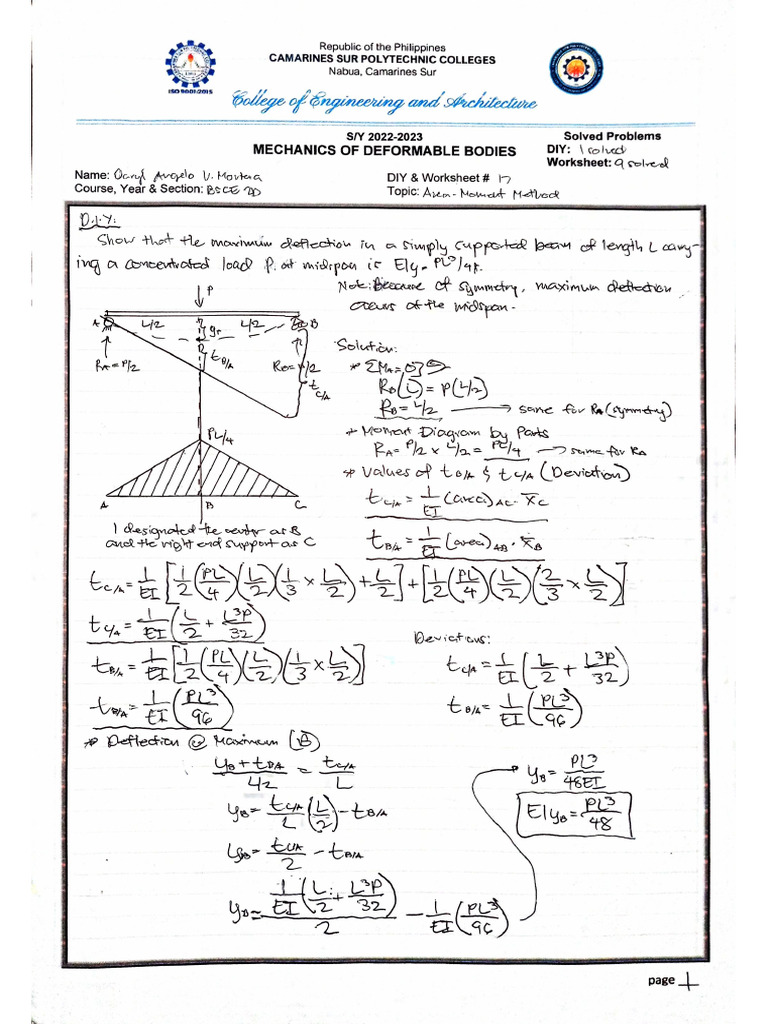 Republic of the Philippines
CAMARINES SUR POLYTECHNIC COLLEGES
Nabua, Camarines Sur
ISO 9001:2015
College of Engineering and Architecture
S/Y 2022-2023
MECHANICS OF DEFORMABLE BODIES
Solved Problems
DIY: 1 solved
Worksheet: 9 solved
Name: Daryl Angelo V.
Course, Year & Section: BSCE 2D
DIY & Worksheet # 17
Topic: Area-Moment Method
D.I.Y:
Show that the maximum deflection in a simply supported beam of length L carry-
ing a concentrated load P at midspan is EIy = PL³/48.
Note: Because of symmetry, maximum deflection
occurs at the midspan.
P
A L/2 L/2 B
t_B/A
R_A = P/2
t_C/A
PL/4
A B C
I designated the center as B
and the right end support as C
Solution:
* ΣM_A = 0
R_B(L) = P(L/2)
R_B = L/2 → same for R_A (symmetry)
* Moment Diagram by Parts
R_A = P/2 x L/2 = PL/4 → same for R_B
* Values of t_B/A & t_C/A (Deviation)
t_C/A = 1/EI (area)_AC · x̄_C
t_B/A = 1/EI (area)_AB · x̄_B
t_C/A = 1/EI [1/2 (PL/4)(L/2)(1/3 × L/2) + L/2] + [1/2 (PL/4)(L/2)(2/3 × L/2)]
t_C/A = 1/EI (L/2 + L³P/32)
t_B/A = 1/EI [1/2 (PL/4)(L/2)(1/3 × L/2)]
t_B/A = 1/EI (PL³/96)
Deviations:
t_C/A = 1/EI (L/2 + L³P/32)
t_B/A = 1/EI (PL³/96)
* Deflection @ Maximum (B)
(y_B + t_B/A)/(L/2) = t_C/A / L
y_B = t_C/A / L (L/2) - t_B/A
y_B = t_C/A / 2 - t_B/A
y_B = 1/EI (L/2 + L³P/32) / 2 - 1/EI (PL³/96)
y_B = PL³/48EI
EIy_B = PL³/48
page 1